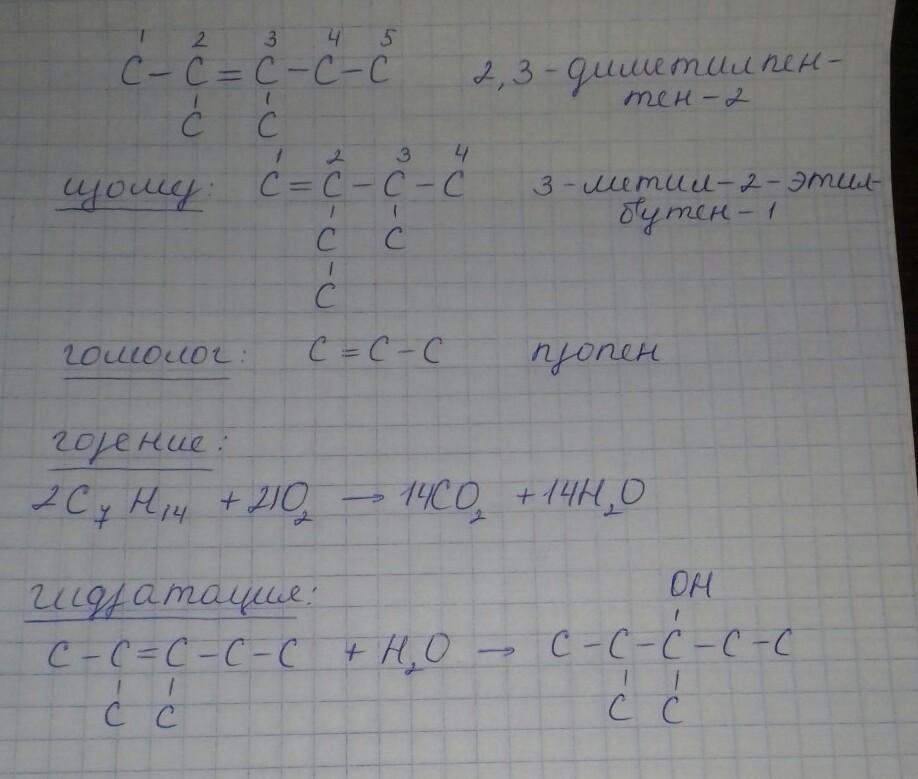 1 2 3 4 5
C - C = C - C - C 2,3 - диметилпен-
C C тен - 2
1 2 3 4
изомер: C = C - C - C 3 - метил - 2 - этил
C C бутен - 1
C
гомолог: C = C - C пропен
горение:
2C₇H₁₄ + 21O₂ → 14CO₂ + 14H₂O
гидратация:
OH
C - C = C - C - C + H₂O → C - C - C - C - C
C C C C